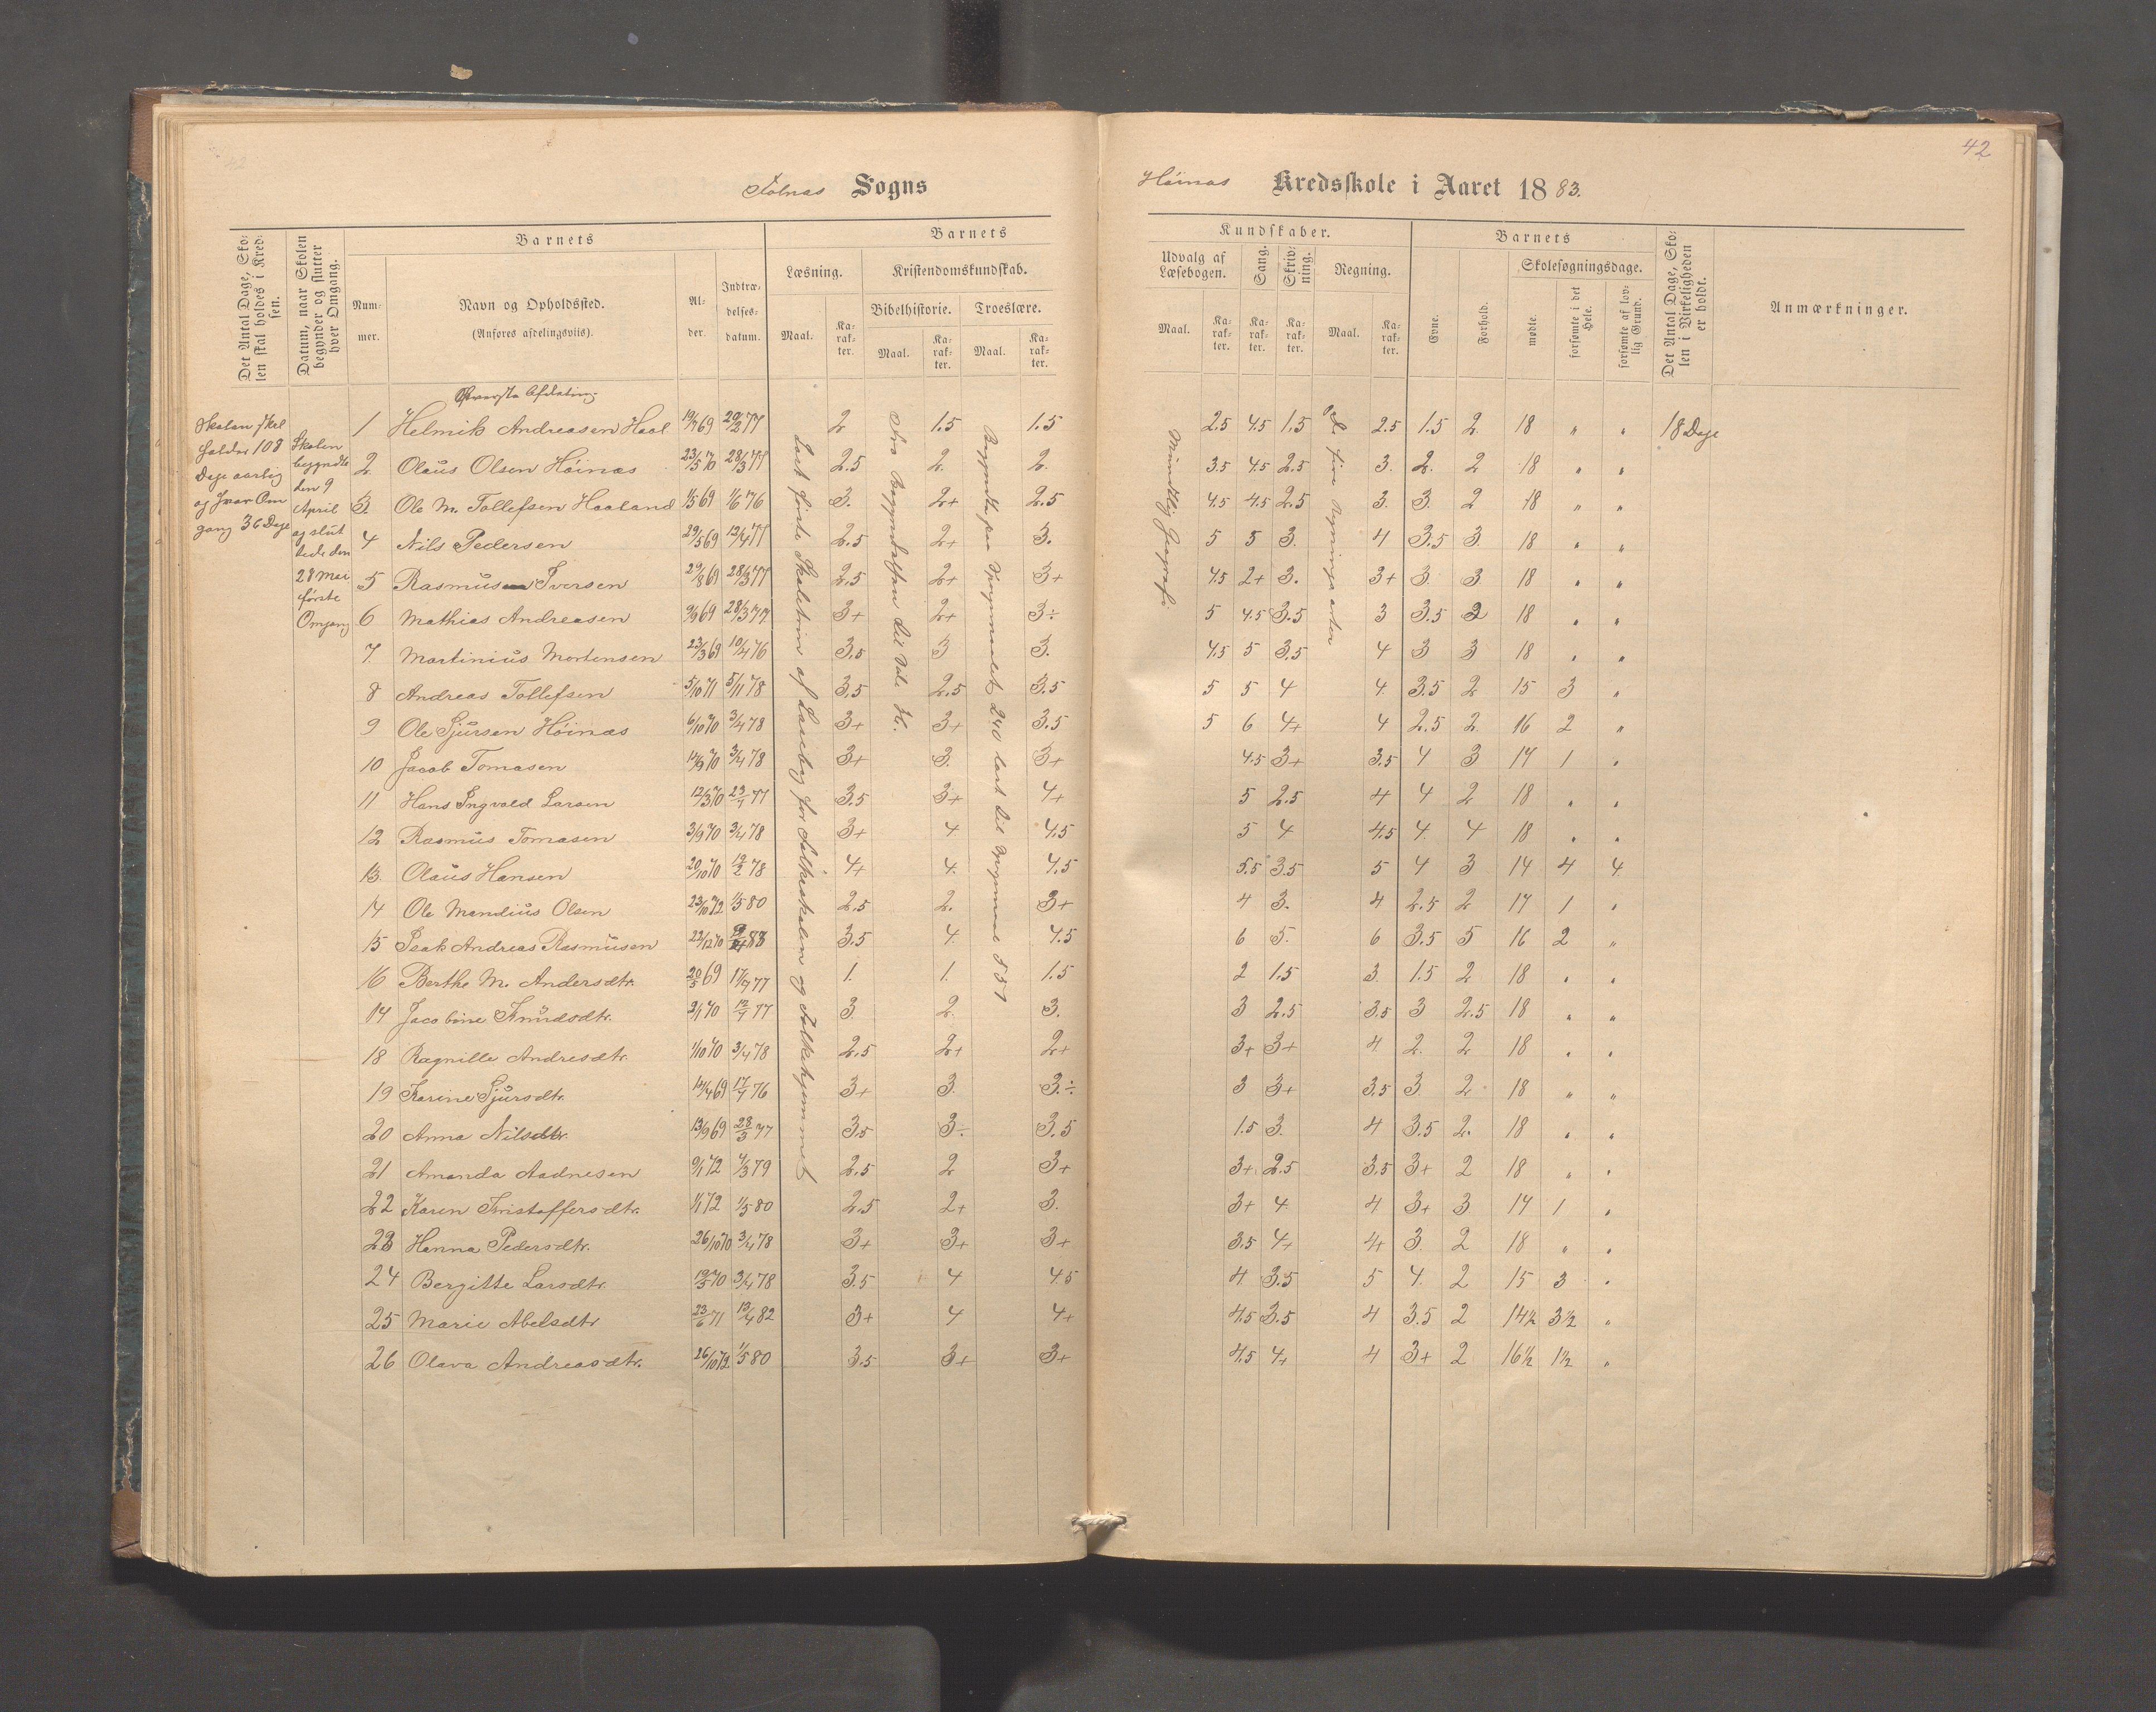 42
Sogns
Høinas Kredsskole i Aaret 1883.
Det Antal Dage, Sko-
len skal holdes i Kred-
sen.
Datum, naar Skolen
begynder og slutter
hver Omgang.
Barnets
Num-
mer.
Navn og Opholdssted.
(Anføres afdelingsviis).
Al-
der.
Indtræ-
delses-
datum.
Barnets
Læsning.
Maal.
Ka-
rak-
ter.
Kristendomskundskab.
Bibelhistorie.
Maal.
Ka-
rak-
ter.
Troeslære.
Maal.
Ka-
rak-
ter.
Kundskaber.
Udvalg af
Læsebogen.
Maal.
Ka-
rak-
ter.
Sang.
Ka-
rak-
ter.
Skriv-
ning.
Ka-
rak-
ter.
Regning.
Maal.
Ka-
rak-
ter.
Barnets
Evne.
Forhold.
Skolesøgningsdage.
mødte.
forsømte i det
Hele.
forsømte af lov-
lig Grund.
Det Antal Dage, Sko-
len i Virkeligheden
er holdt.
Anmærkninger.
Øverste Afdeling
Skolen skal
holdes 108
Dage aarlig
og hver Om
gang 36 Dage
Skolen
begyndte
den 9
April
og slut
tede den
28 Mai
første
Omgang
Læst første Skoletrin af Læsebog for Folkeskolen og Folkehjemmet
Fra Begyndelsen til
Begyndte paa Spørgsmaalet 240 læst til Spørgsmaal 551
Mundtlig Geografi
De fire Regningsarter
1 Helmik Andreasen Haal 19/7 69 20/2 77 2 1.5 1.5 2.5 4.5 1.5 2.5 1.5 2 18 " " 18 Dage
2 Olaus Olsen Höinas 23/5 70 28/3 77 2.5 2. 2. 3.5 4.5 2.5 3. 2. 2 18 " "
3. Ole M. Tollefsen Haaland 1/5 69 1/6 76 3. 2+ 2.5 4.5 4.5 2.5 3. 3. 2 18 " "
4 Nils Pedersen 29/5 69 12/4 77 2.5 2+ 3. 5 5 3. 4 3.5 3. 18 " "
5 Rasmus Iversen 29/8 69 28/3 77 2.5 2+ 3+ 4.5 2+ 3. 3+ 3. 3. 18 " "
6 Mathias Andreasen 9/9 69 28/3 77 3+ 2+ 3÷ 5 4.5 3.5 3 3.5 2 18 " "
7. Martinius Mortensen 23/3 69 10/4 76 3.5 3 3. 4.5 5 3.5 4 3 3 18 " "
8 Andreas Tollefsen 5/10 71 5/11 78 3.5 2.5 3.5 5 5 4 4. 3.5 2 15 3 "
9 Ole Sjursen Höinas 6/10 70 3/4 78 3+ 3+ 3.5 5 6 4+ 4 2.5 2. 16 2 "
10 Jacob Tomasen 14/9 70 3/4 78 3+ 3. 3+ 4.5 3+ 3.5 4 3 17 1 "
11 Hans Ingvald Larsen 12/3 70 23/4 77 3.5 3+ 4+ 5 2.5 4 4 2 18 " "
12 Rasmus Tomasen 3/9 70 3/4 78 3+ 4 4.5 5 4 4.5 4. 4 18 " "
13. Olaus Hansen 20/10 70 12/2 78 4+ 4. 4.5 5.5 3.5 5 4 3 14 4 4.
14 Ole Mandius Olsen 23/10 72 1/5 80 2.5 2. 3+ 4 3. 4 2.5 2 17 1 "
15 Isak Andreas Rasmusen 22/12 70 9/4 83 3.5 4. 4.5 6 5. 6 3.5 5 16 2 "
16 Berthe M. Andersdtr. 20/5 69 17/4 77 1. 1. 1.5 2 1.5 3. 1.5 2 18 " "
17 Jacobine Knudsdtr. 2/1 70 12/4 77 3. 2. 3. 3 2.5 3.5 3 2.5 18 " "
18 Ragnille Andresdtr. 1/10 70 3/4 78 2.5 2+ 2+ 3+ 3+ 4. 2. 2 18 " "
19 Karine Sjursdtr. 14/4 69 17/4 76 3+ 3. 3÷ 3 3+ 3.5 3. 2 18 " "
20 Anna Nilsdtr. 13/9 69 28/3 77 3.5 3÷ 3.5 1.5 3. 4 3.5 2. 18 " "
21 Amanda Aadnesen 9/1 72 4/3 79 2.5 2 3+ 3+ 2.5 3.5 3+ 2 18 " "
22 Karen Kristoffersdtr. 1/1 72 1/5 80 2.5 2+ 3. 3+ 4 4 3+ 3 17 1 "
23 Hanna Pedersdtr. 26/10 70 3/4 78 3+ 3+ 3+ 3.5 4+ 4+ 3. 2 18 " "
24 Bergitte Larsdtr. 19/3 70 3/4 78 3.5 4 4.5 4. 3.5 5 4. 2 15 3 "
25 Marie Abelsdtr 23/6 71 13/4 82 3+ 4 4+ 4.5 3.5 4 3.5 2 14½ 3½ "
26 Olava Andreasdtr. 26/10 72 1/5 80 3.5 3+ 3+ 4.5 4+ 4 3+ 2 16½ 1½ "